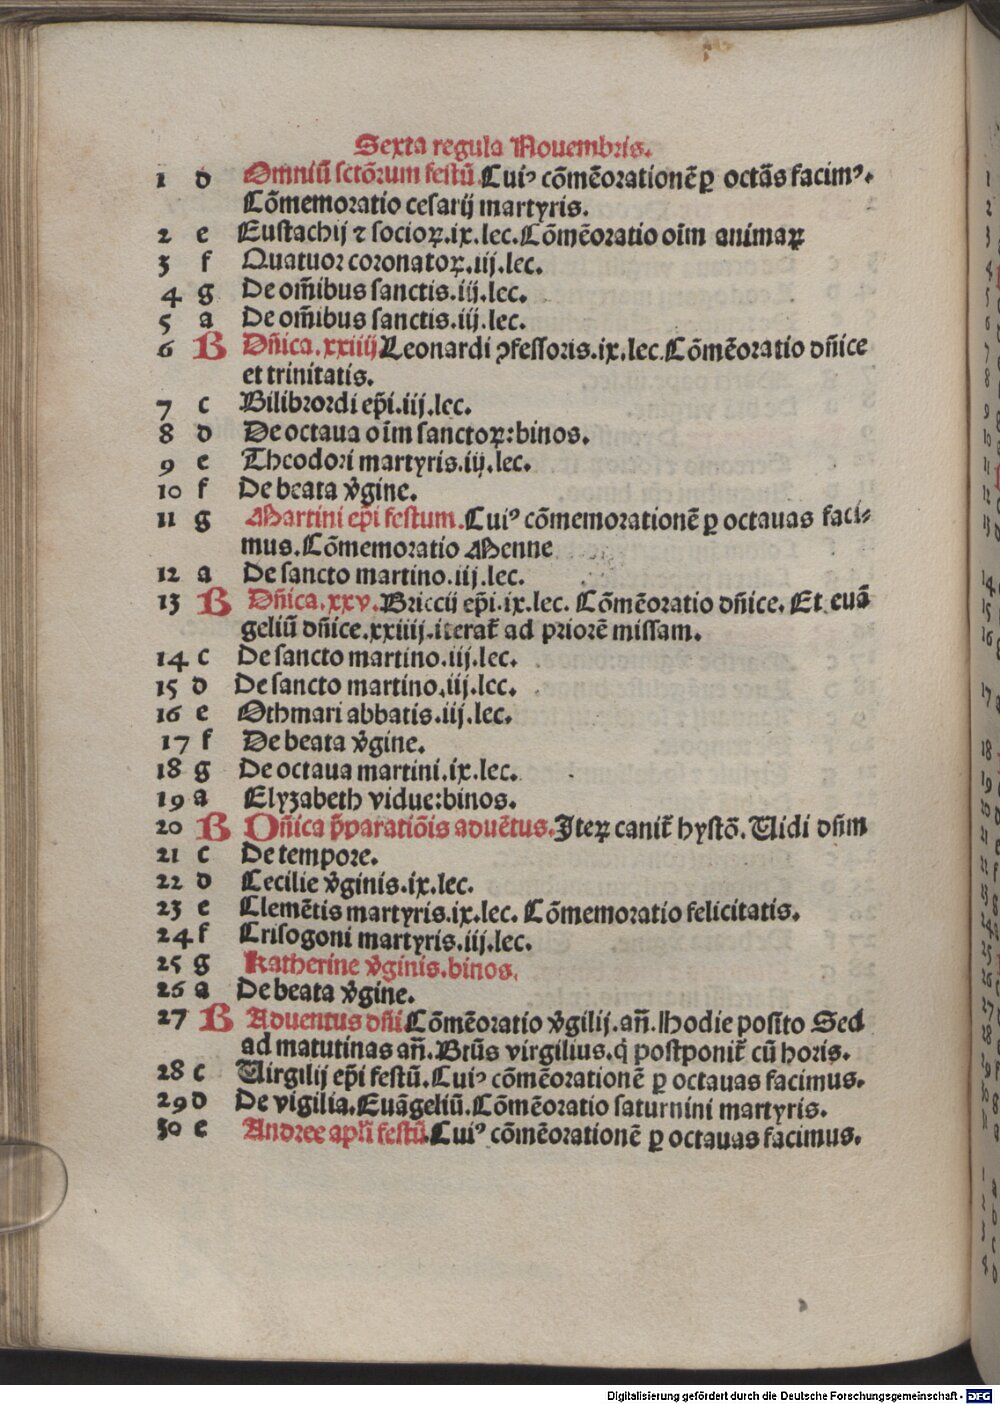 Sexta regula Nouembris.
1 d Omniū sctõrum festū Cuiꝰ cõmẽorationẽ ꝑ octãs facimꝰ.
Cõmemoratio cesarij martyris.
2 e Eustachij ⁊ socioꝝ.ix.lec.Cõmẽoratio oĩm animaꝝ
3 f Quatuor coronatoꝝ.iij.lec.
4 g De om̃ibus sanctis.iij.lec.
5 a De om̃ibus sanctis.iij.lec.
6 B Dñica.xxiiij Leonardi ꝯfessoris.ix.lec.Cõmẽoratio dñice
et trinitatis.
7 c Bilibrordi ep̃i.iij.lec.
8 d De octaua oĩm sanctoꝝ:binos.
9 e Theodori martyris.iij.lec.
10 f De beata v̾gine.
11 g Martini ep̃i festum.Cuiꝰ cõmemorationẽ ꝑ octauas faci-
mus.Cõmemoratio Menne
12 a De sancto martino.iij.lec.
13 B Dñica.xxv.Briccij ep̃i.ix.lec. Cõmẽoratio dñice. Et euã
geliū dñice.xxiiij.iterat̃ ad priorẽ missam.
14 c De sancto martino.iij.lec.
15 d De sancto martino.iij.lec.
16 e Othmari abbatis.iij.lec.
17 f De beata v̾gine.
18 g De octaua martini.ix.lec.
19 a Elyzabeth vidue:binos.
20 B Dñica p̃paratiõis aduẽtus.Iteꝝ canit̃ hystõ. Uidi dñm
21 c De tempore.
22 d Cecilie v̾ginis.ix.lec.
23 e Clemẽtis martyris.ix.lec. Cõmemoratio felicitatis.
24 f Crisogoni martyris.iij.lec.
25 g Katherine v̾ginis.binos.
26 a De beata v̾gine.
27 B Aduentus dñi Cõmẽoratio v̾gilij.añ.Hodie posito Sed
ad matutinas añ.Btũs virgilius.q̃ postponit̃ cū horis.
28 c Uirgilij ep̃i festū.Cuiꝰ cõmẽorationẽ ꝑ octauas facimus.
29 d De vigilia.Euãgeliū.Cõmẽoratio saturnini martyris.
30 e Andree apl̃i festū.Cuiꝰ cõmẽorationẽ ꝑ octauas facimus.
Digitalisierung gefördert durch die Deutsche Forschungsgemeinschaft - DFG